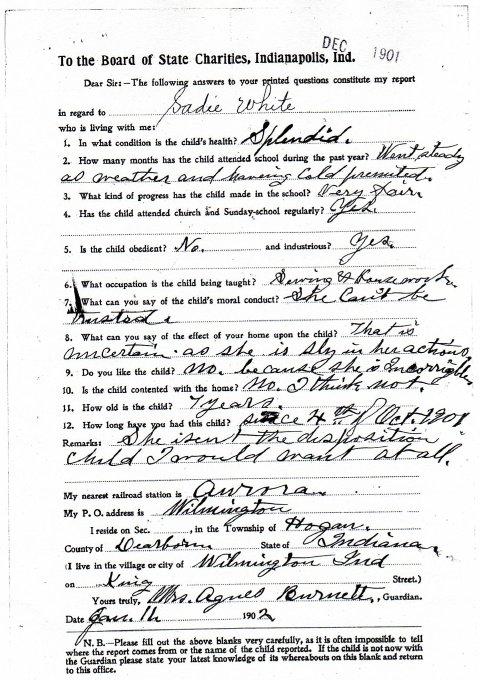 DEC 1901
To the Board of State Charities, Indianapolis, Ind.
Dear Sir:—The following answers to your printed questions constitute my report
in regard to Sadie White
who is living with me:
1. In what condition is the child's health? Splendid.
2. How many months has the child attended school during the past year? Went steady
as weather and having Cold premited.
3. What kind of progress has the child made in the school? Very fair.
4. Has the child attended church and Sunday-school regularly? Yes.
5. Is the child obedient? No. and industrious? Yes.
6. What occupation is the child being taught? Sewing & Housework.
7. What can you say of the child's moral conduct? She Can't be
trusted.
8. What can you say of the effect of your home upon the child? That is
uncertain. as she is sly in her actions
9. Do you like the child? No. because she is Incorrigible
10. Is the child contented with the home? No. I think not
11. How old is the child? 7 years.
12. How long have you had this child? since 4th of Oct. 1901
Remarks: She isent the disposition
child I would want at all.
My nearest railroad station is Aurora.
My P. O. address is Wilmington
I reside on Sec. , in the Township of Hogan.
County of Dearborn State of Indiana.
(I live in the village or city of Wilmington Ind
on King Street.)
Yours truly, Mrs. Agnes Burnett, Guardian.
Date Jan. 1902
N. B.—Please fill out the above blanks very carefully, as it is often impossible to tell
where the report comes from or the name of the child reported. If the child is not now with
the Guardian please state your latest knowledge of its whereabouts on this blank and return
to this office.